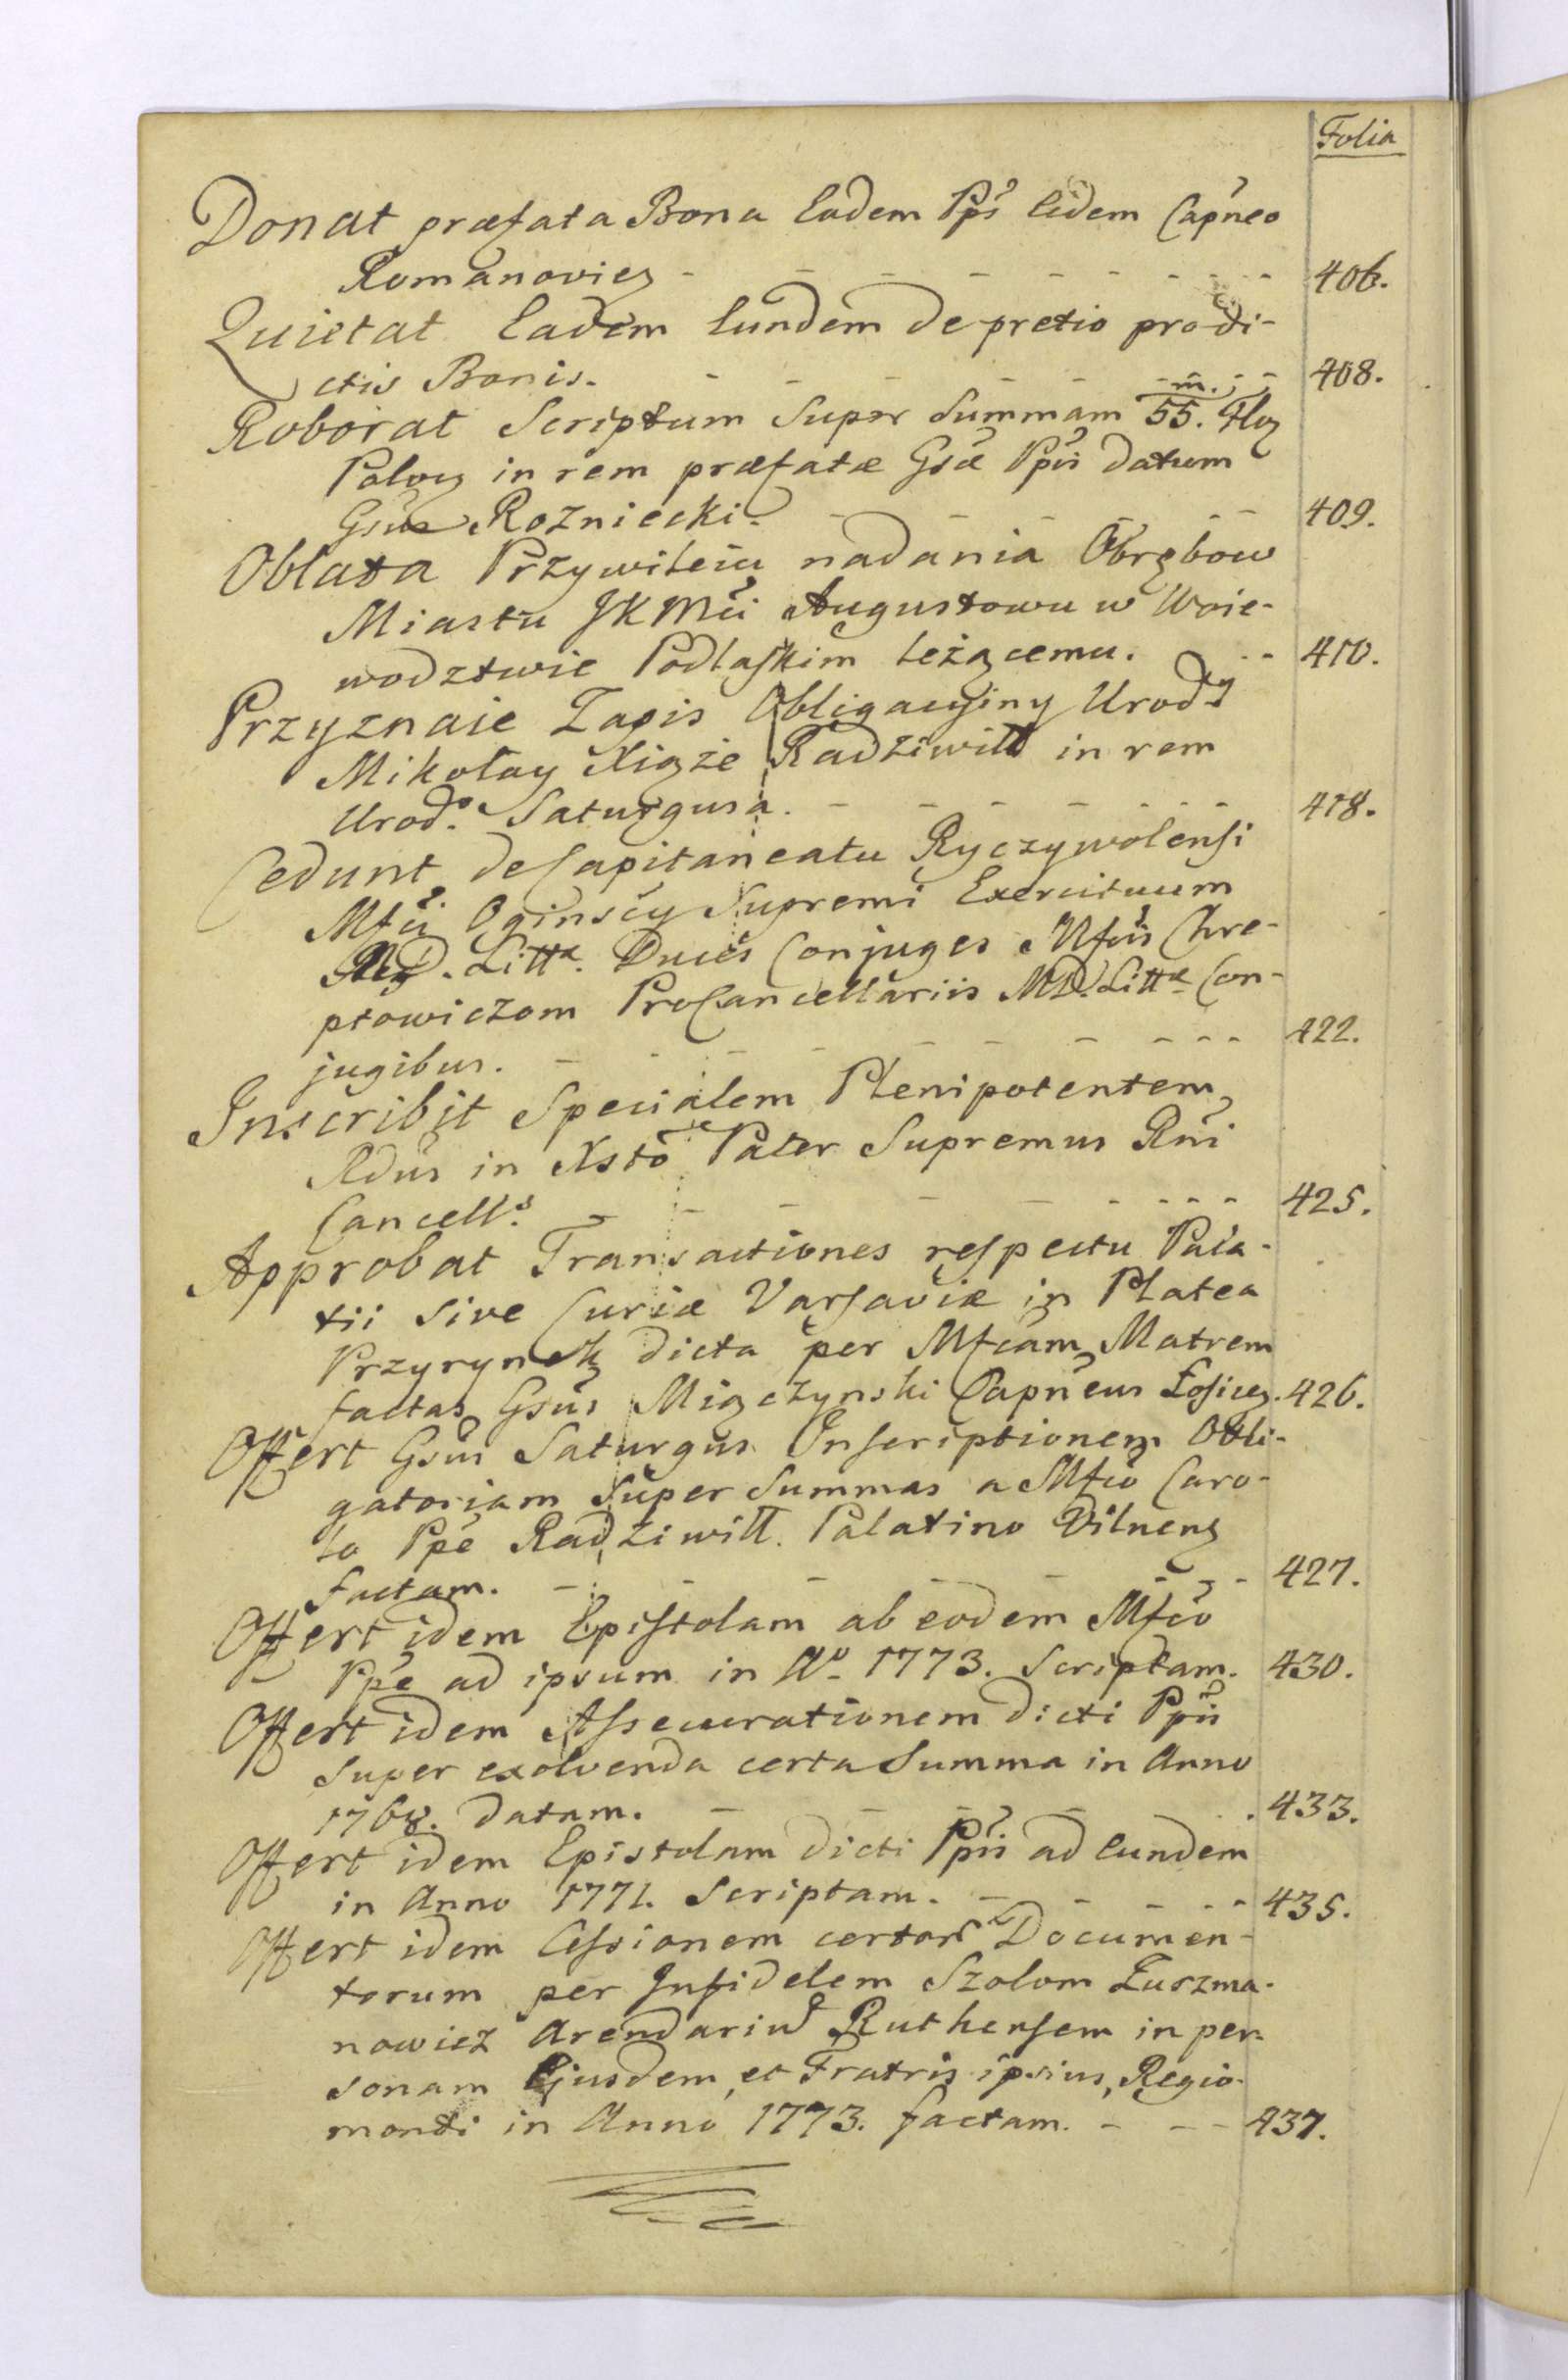 Folia
Donat præfata Bona Eadem Pps̃ Eidem Capñeo
Romanovicz - - - - - - - - - 406.
Quietat Eadem Eundem de pretio prædi-
ctis Bonis. - - - - - - - - 408.
Roborat Scriptum Super Summam 55.m Floz
Poloz in rem præfatæ Gsæ Ppis datum
Gsus Rozniecki. - - - - - - - 409.
Oblata Przywileiu nadania Obrębow
Miastu JKMci Augustowu w Woie-
wodztwie Podlaskim leżącemu. - - 410.
Przyznaie Zapis Obligacyiny Urod.
Mikołay Xiąże Radziwiłł in rem
Urod.o Saturgusa. - - - - - - - 418.
Cedunt de Capitaneatu Ryczywolensi
Mfci Oginscy Supremi Exercituum
M.D. Littæ. Duces Conjuges Mfcis Chre-
ptowiczom ProCancellariis M.D. Littæ Con-
jugibus. - - - - - - - - - 422.
Inscribit Specialem Plenipotentem
Rdus in Xsto Pater Supremus Rni
Cancells. - - - - - - - - 425.
Approbat Transactiones respectu Pala-
tii sive Curiæ Varsaviæ in Platea
Przyrynek dicta per Mfcam Matrem
factas Gsus Miączynski Capñeus Łosicz. 426.
Offert Gsus Saturgus Inscriptionem Obli-
gatoriam Super Summas a Mfco Caro-
lo Ppe Radziwiłł. Palatino Vilnens
factam. - - - - - - - - 427.
Offert idem Epistolam ab eodem Mfco
Ppe ad ipsum in Ao 1773. Scriptam. 430.
Offert idem Assecurationem dicti Ppis
Super exolvenda certa Summa in Anno
1768. datam. - - - - - 433.
Offert idem Epistolam dicti Ppis ad Eundem
in Anno 1771. Scriptam. - - - - - 435.
Offert idem Cessionem certor Documen-
torum per Infidelem Szolom Łuszma-
nowicz Arendariu Ruthensem in per-
sonam Ejusdem, et Fratris ipsius, Regio-
monti in Anno 1773. factam. - - - 437.